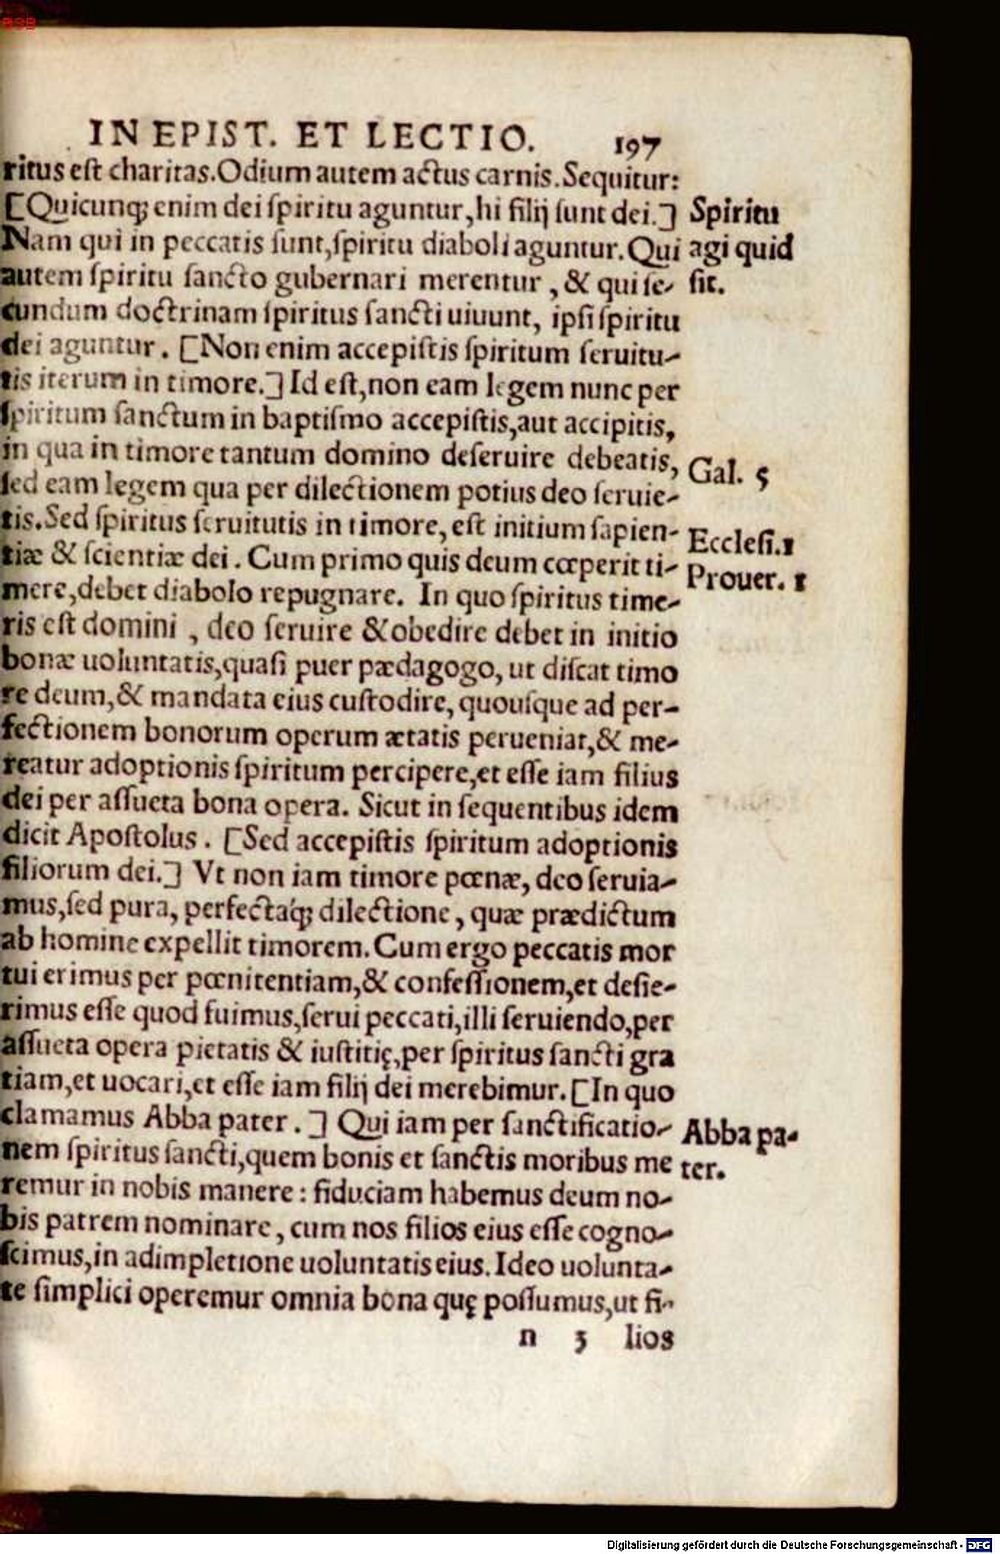 BSB
IN EPIST. ET LECTIO. 197
ritus est charitas. Odium autem actus carnis. Sequitur:
[Quicunq; enim dei spiritu aguntur, hi filij sunt dei.] Spiritu
Nam qui in peccatis sunt, spiritu diaboli aguntur. Qui agi quid
autem spiritu sancto gubernari merentur, & qui se- sit.
cundum doctrinam spiritus sancti uiuunt, ipsi spiritu
dei aguntur. [Non enim accepistis spiritum seruitu-
tis iterum in timore.] Id est, non eam legem nunc per
spiritum sanctum in baptismo accepistis, aut accipitis,
in qua in timore tantum domino deseruire debeatis, Gal. 5
sed eam legem qua per dilectionem potius deo seruie-
tis. Sed spiritus seruitutis in timore, est initium sapien- Ecclesi. 1
tiæ & scientiæ dei. Cum primo quis deum cœperit ti- Prouer. 1
mere, debet diabolo repugnare. In quo spiritus time-
ris est domini, deo seruire & obedire debet in initio
bonæ uoluntatis, quasi puer pædagogo, ut discat timo
re deum, & mandata eius custodire, quousque ad per-
fectionem bonorum operum ætatis perueniat, & me-
reatur adoptionis spiritum percipere, et esse iam filius
dei per assueta bona opera. Sicut in sequentibus idem
dicit Apostolus. [Sed accepistis spiritum adoptionis
filiorum dei.] Vt non iam timore pœnæ, deo seruia-
mus, sed pura, perfectáq; dilectione, quæ prædictum
ab homine expellit timorem. Cum ergo peccatis mor
tui erimus per pœnitentiam, & confessionem, et desie-
rimus esse quod fuimus, serui peccati, illi seruiendo, per
assueta opera pietatis & iustitię, per spiritus sancti gra
tiam, et uocari, et esse iam filij dei merebimur. [In quo
clamamus Abba pater.] Qui iam per sanctificatio- Abba pa-
nem spiritus sancti, quem bonis et sanctis moribus me ter.
remur in nobis manere: fiduciam habemus deum no-
bis patrem nominare, cum nos filios eius esse cogno-
scimus, in adimpletione uoluntatis eius. Ideo uolunta-
te simplici operemur omnia bona quę possumus, ut fi-
n 3 lios
Digitalisierung gefördert durch die Deutsche Forschungsgemeinschaft - DFG